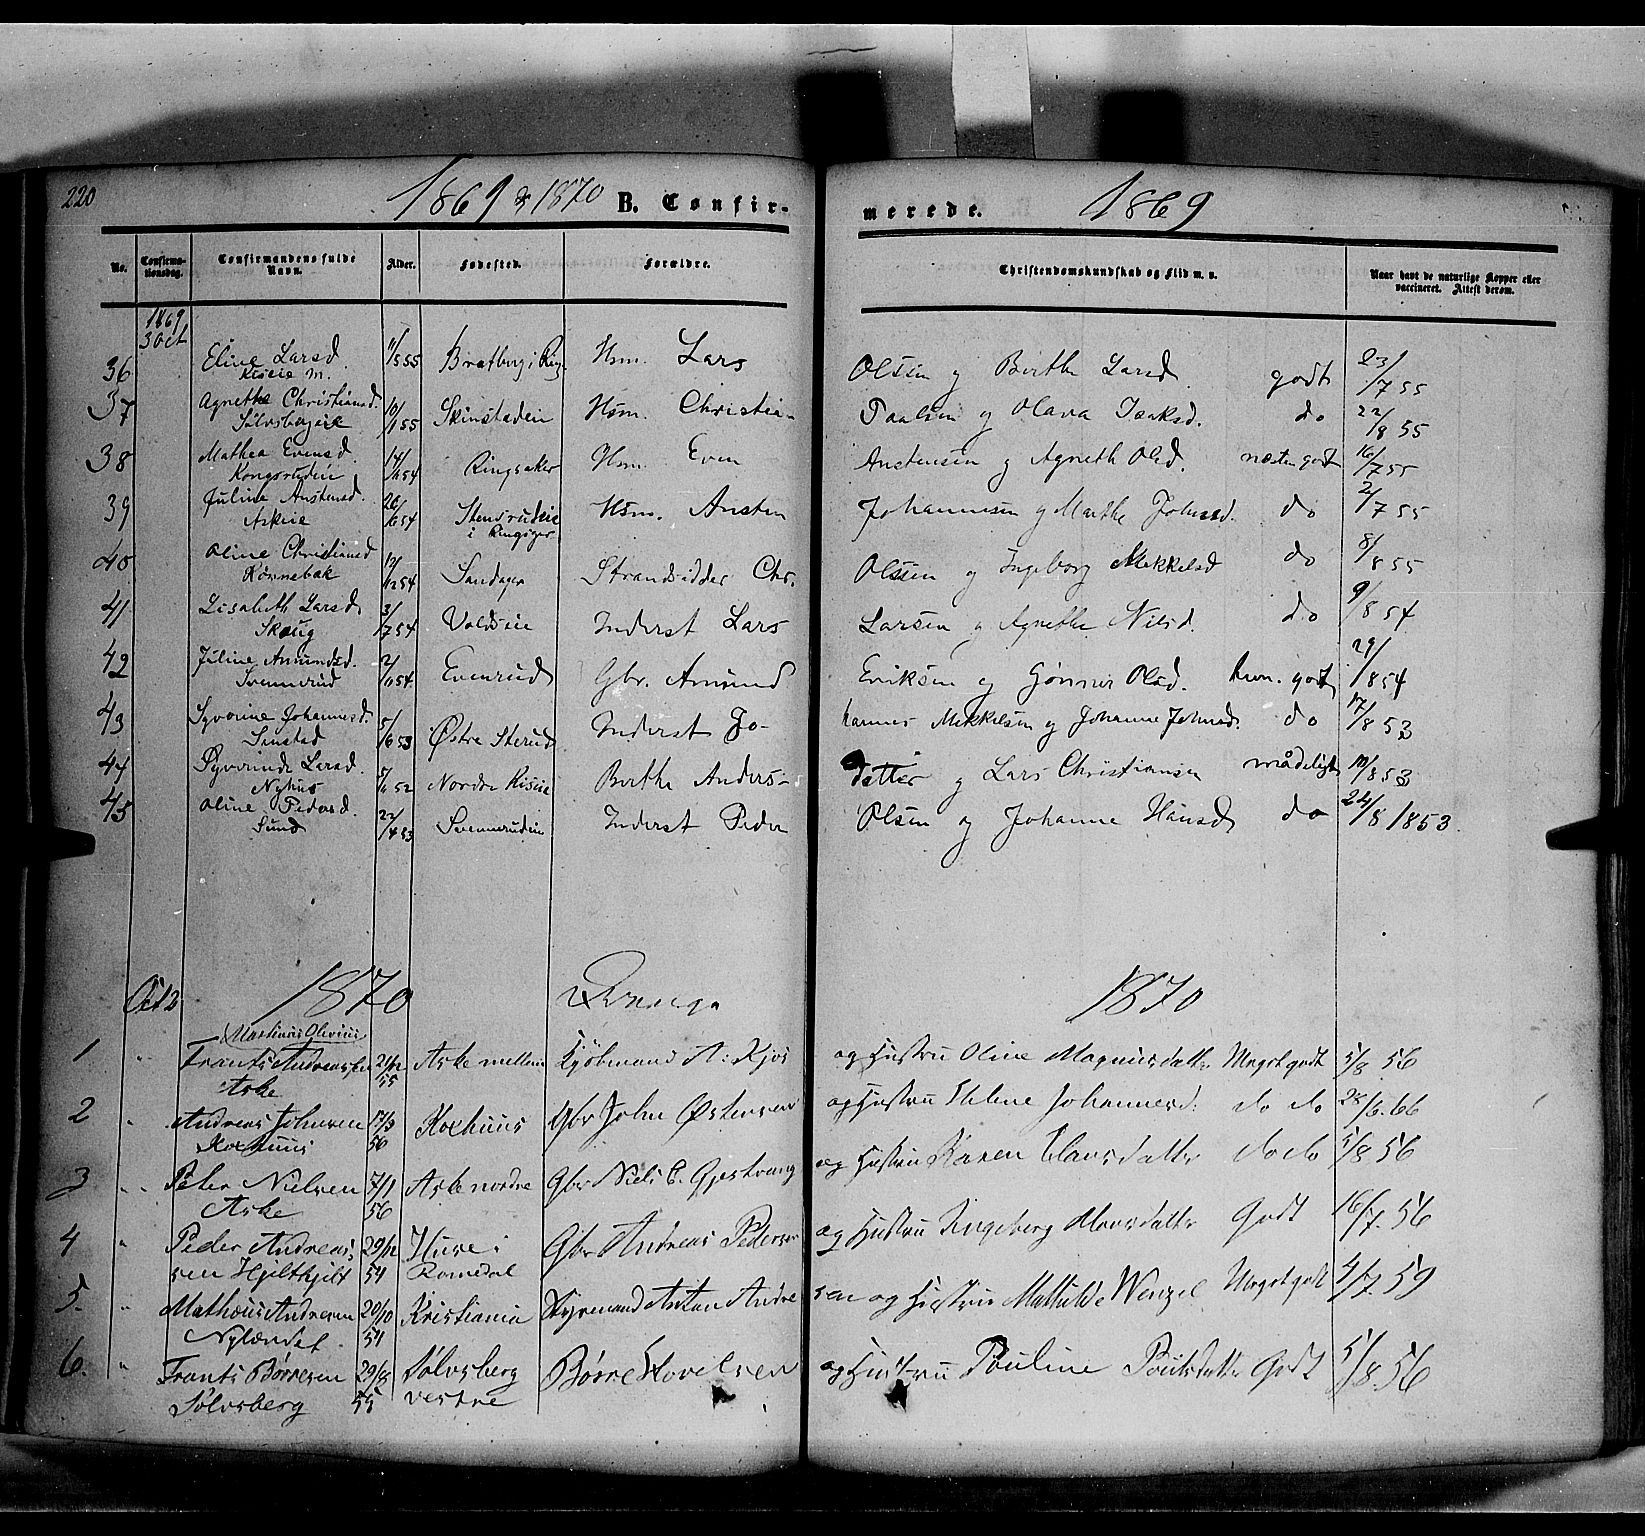 220
1869 & 1870 B. Confir-
merede. 1869
No. Confirmationsdag. Confirmandens fulde Navn. Alder. Fødested. Forældre.
Christendomskundskab og Flid m. v. Naar havt de naturlige Kopper eller vaccineret. Attest derom.
1869
3 Oct
36 Eline Larsd. 11/5 55 Bratberg i Ring. Hsm. Lars Olsen og Berthe Larsd. godt 23/7 55
Kiseie m.
37 Agnethe Christiansd. 10/1 55 Skinstadeie Hsm. Christian Paulsen og Olava Isaksd. do 22/8 55
Sølvsbergeie
38 Mathea Evensd. 14/ 54 Ringsaker Hsm. Even Anstensen og Agneth Olsd. næsten godt 16/7 55
Kongsrudeie
39 Juline Anstensd. 26/6 54 Stensrudeie Hsm. Ansten Johannesen og Marthe Johnsd. do 2/7 55
Askeie i Ringsager
40 Oline Christiansd 12/12 54 Sandager Strandsidder Chr. Olsen og Ingeborg Mekkelsd do 8/8 55
Rønnebæk
41 Lisabeth Larsd. 3/7 54 Voldseie Inderst Lars Larsen og Agnethe Nilsd. do 9/8 54
Skaug
42 Juline Amundsd. 2/ 54 Evenrud Gbr. Amund Eriksen og Gønner Olsd. hvn. godt 29/8 54
Svennerud
43 Syvorine Johannesd. 5/6 53 Østre Sterud Inderst Jo- hannes Mekkelsen og Johanne Johnsd. do 17/8 53
Sanstad
44 Syverinde Larsd. 7/ 52 Nordre Kiseie Berthe Anders- datter og Lars Christiansen mådeligt 10/8 53
Nyhus
45 Oline Pedersd. 22/4 53 Svennerudeie Inderst Peder Olsen og Johanne Hansd do 24/8 1853.
Sund
Oct 2 1870 Drenge 1870
Martinus Olivius
1 " Frants Andreassen 21/12 55 Aske mellem Kjøbmand A: Kjos og Hustru Oline Magnusdatter Megetgodt 5/8 56
Aske
2 " Andreas Johnsen 17/3 56 Koxhuus Gbr John Østensen og Hustru Helene Johannesd: do do 28/6.66
Koxhuus
3 " Peter Nielsen 7/1 56 Aske nordre Gbr Niels C. Gjestvang og Hustru Karen Clausdatter do do 5/8 56
Aske
4 " Peder Andreas 29/12 54 Huse i Gbr Andreas Pedersen og Hustru Ingeborg Moosdatter Godt 16/7.56
sen Hjelthjelt Romedal
5. " Mathæus Andresen 20/10 54 Kristiania Styrmand Anton Andre sen og Hustru Mathilde Wenzel Megetgodt 4/7.59
Nylændet.
6. " Frants Børresen 29/8 55 Sølvsberg Børre Hovelsen og Hustru Pauline Poulsdatter Godt 5/8 56
Sølvsberg vestre